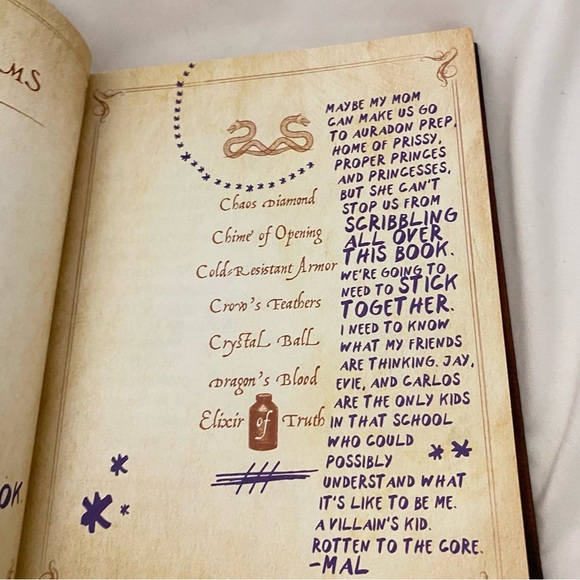 MS
OK.
Chaos Diamond
Chime of Opening
Cold-Resistant Armor
Crow's Feathers
Crystal Ball
Dragon's Blood
Elixir of Truth
MAYBE MY MOM
CAN MAKE US GO
TO AURADON PREP,
HOME OF PRISSY,
PROPER PRINCES
AND PRINCESSES,
BUT SHE CAN'T
STOP US FROM
SCRIBBLING
ALL OVER
THIS BOOK.
WE'RE GOING TO
NEED TO STICK
TOGETHER.
I NEED TO KNOW
WHAT MY FRIENDS
ARE THINKING. JAY,
EVIE, AND CARLOS
ARE THE ONLY KIDS
IN THAT SCHOOL
WHO COULD
POSSIBLY
UNDERSTAND WHAT
IT'S LIKE TO BE ME.
A VILLAIN'S KID.
ROTTEN TO THE CORE.
-MAL